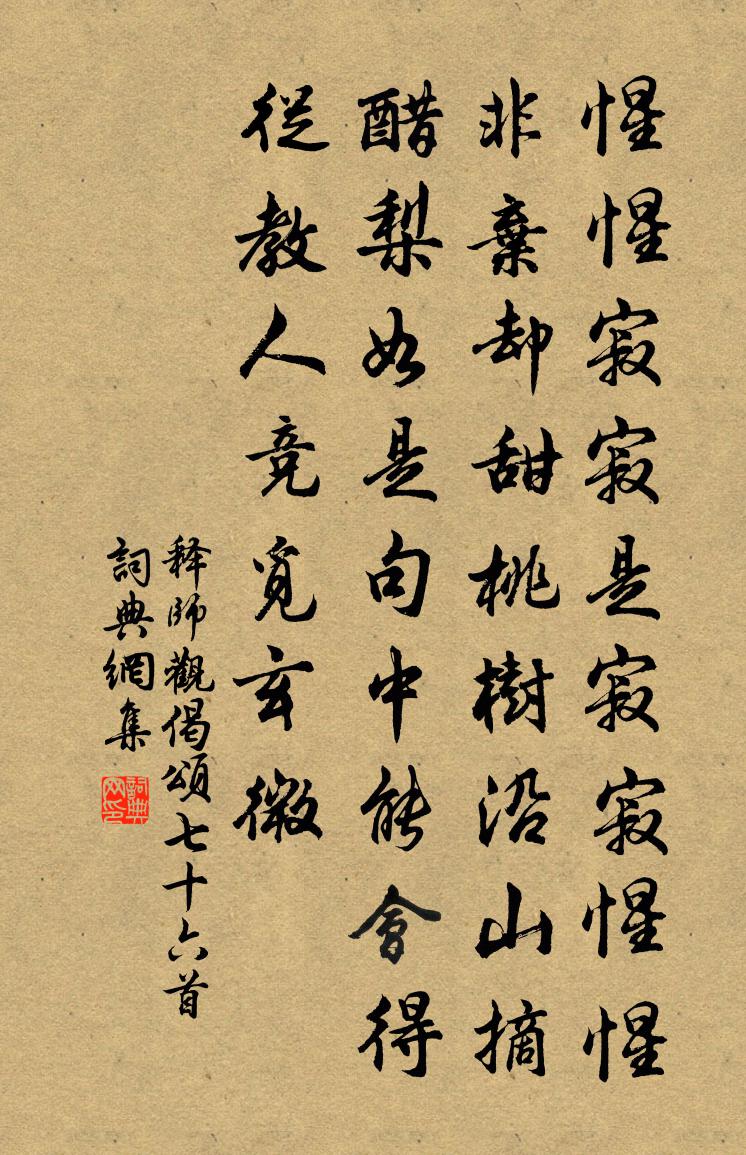 惺惺寂寂是寂寂惺惺
非棄却甜桃樹沿山摘
醋梨如是句中能會得
從教人竞覓玄微
释師觀偈頌七十六首
詞典網集
詞典网印